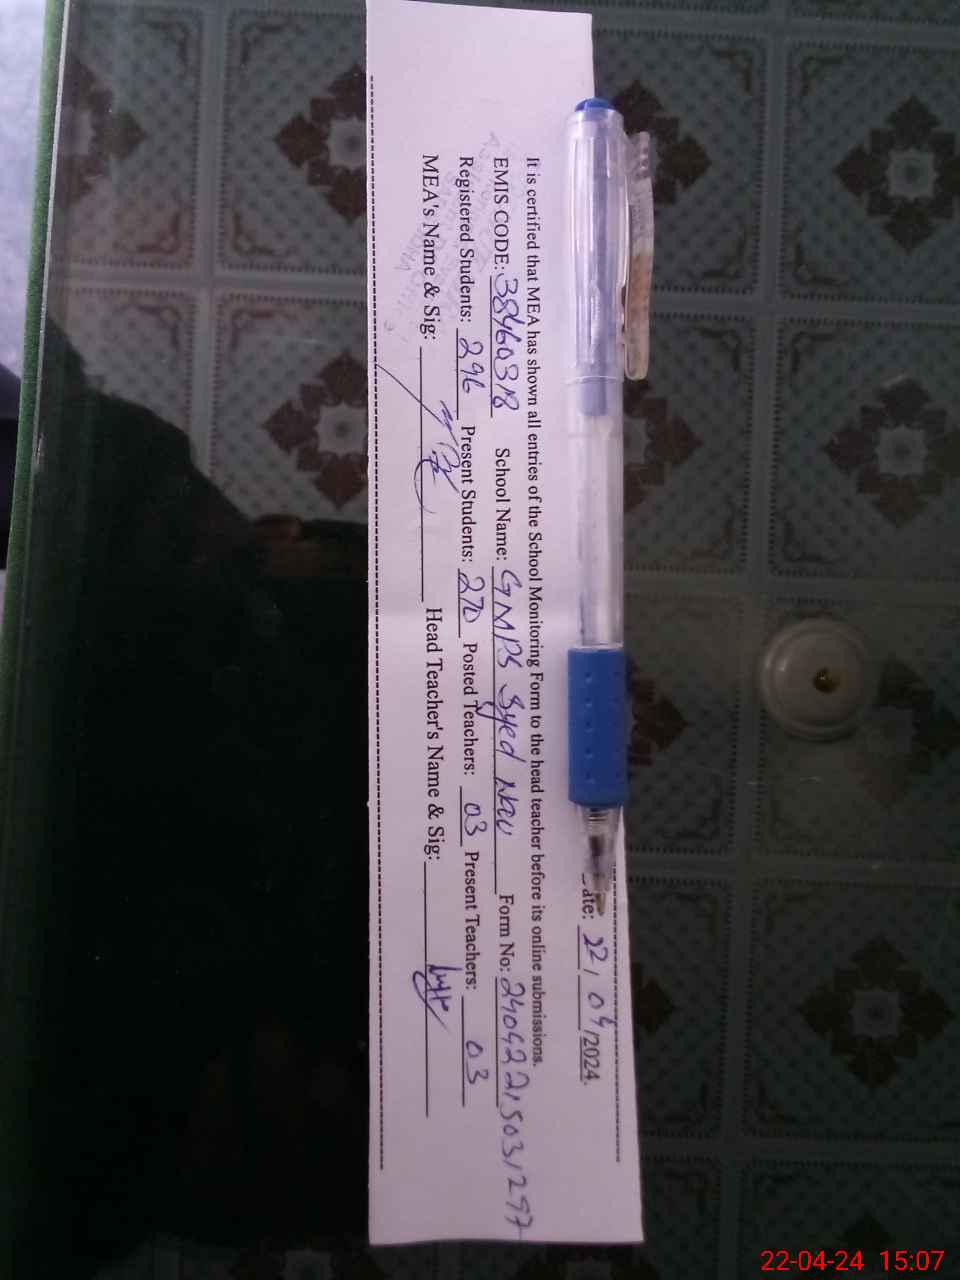 ate: 22/04/2024.
It is certified that MEA has shown all entries of the School Monitoring Form to the head teacher before its online submissions.
EMIS CODE: 38460318 School Name: GMPS Syed Now Form No: 24042215031297
Registered Students: 296 Present Students: 270 Posted Teachers: 03 Present Teachers: 03
MEA's Name & Sig: Head Teacher's Name & Sig:
22-04-24 15:07